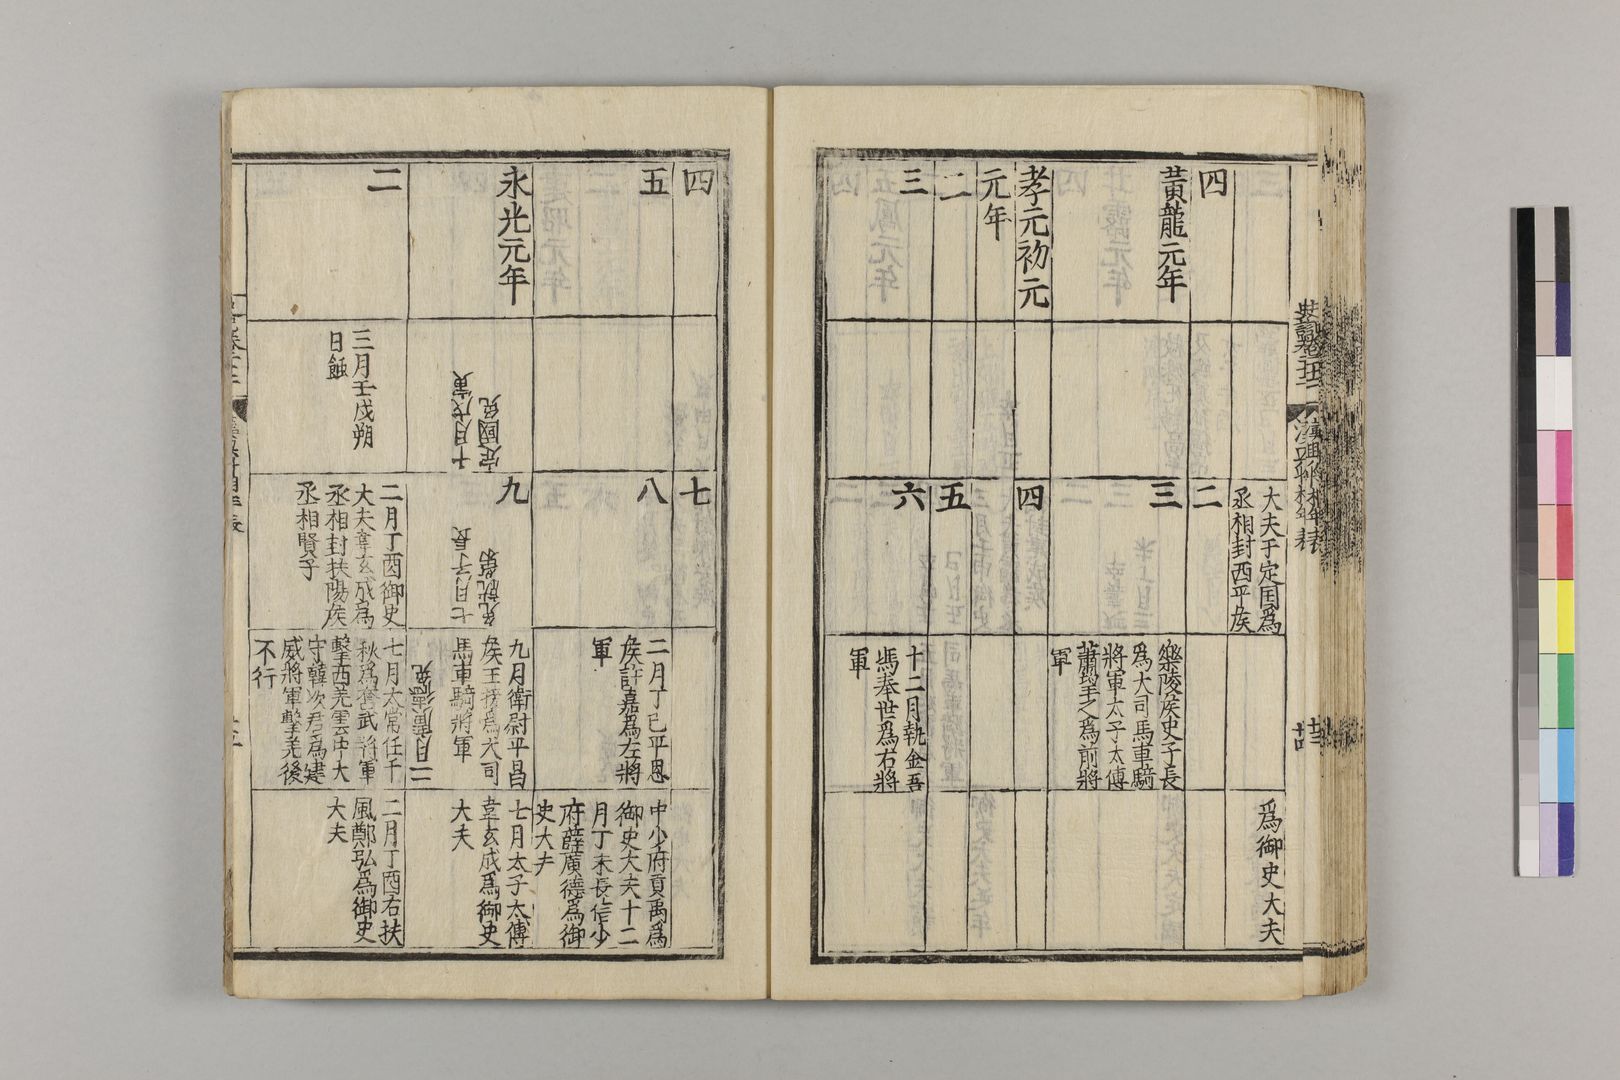 大夫于定国為
丞相封西平侯
為御史大夫
四
二
黃龍元年
三
樂陵侯史子長
為大司馬車騎
將軍太子太傅
蕭望之為前將
軍
孝元初元
元年
四
二
五
三
六
十二月執金吾
馮奉世為右將
軍
四
七
五
八
二月丁巳平恩
侯許嘉為左將
軍
中少府貢禹為
御史大夫十二
月丁未長信少
府薛廣德為御
史大夫
永光元年
十月戊寅
定國免
九
七月子長
免就第
九月衛尉平昌
侯王接為大司
馬車騎將軍
二月廣德免
七月太子太傅
韋玄成為御史
大夫
二
三月壬戌朔
日蝕
二月丁酉御史
大夫韋玄成為
丞相封扶陽侯
丞相賢子
七月太常任千
秋為奮武將軍
擊西羌雲中大
守韓次君為建
威將軍擊羌後
不行
二月丁酉右扶
風鄭弘為御史
大夫